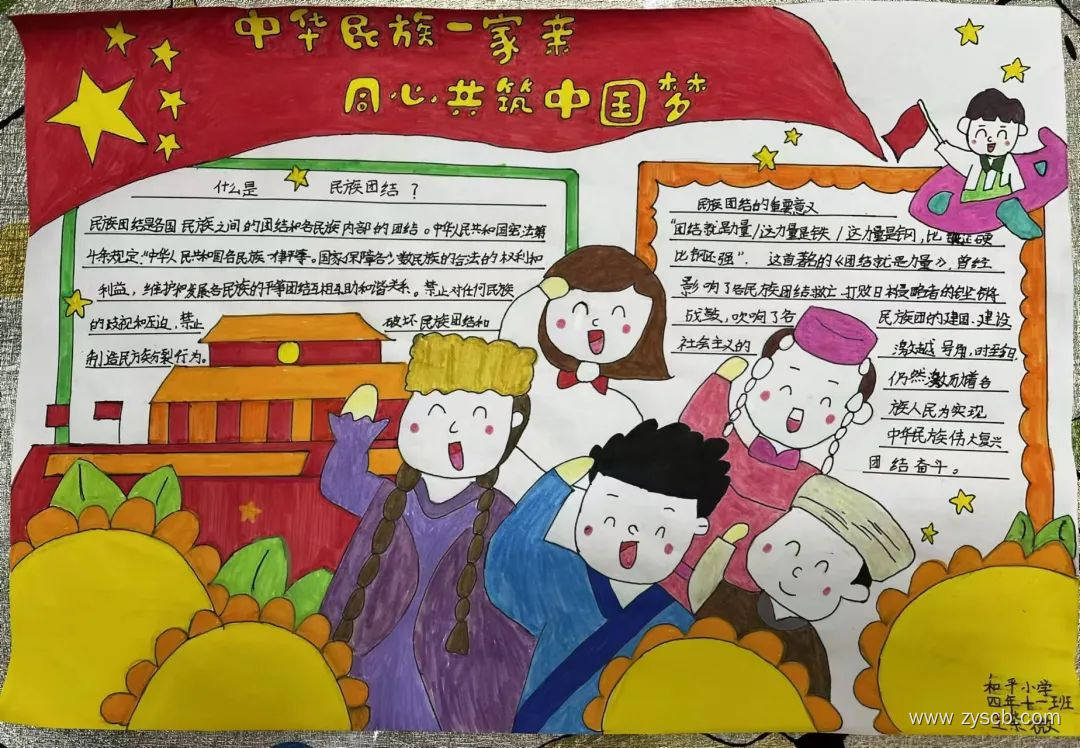 中华民族一家亲
同心共筑中国梦
什么是 民族团结？
民族团结是各国民族之间的团结和各民族内部的团结。中华人民共和国宪法第
四条规定:"中华人民共和国各民族一律平等。国家保障各少数民族的合法的权利和
利益，维护和发展各民族的平等团结互相互助和谐关系。禁止对任何民族
的歧视和压迫，禁止 破坏民族团结和
制造民族分裂行为。
民族团结的重要意义
"团结就是力量/这力量是铁/这力量是钢，比 还硬
比钢还强"。这首著名的《团结就是力量》，曾经
影响了各民族团结救亡打败日本侵略者的
战鼓，吹响了各 民族团的建国、建设
社会主义的 激越号角，时至今日，
仍然激励着各
族人民为实现
中华民族伟大复兴
团结奋斗。
和平小学
四年七一班
www.zyscb.com